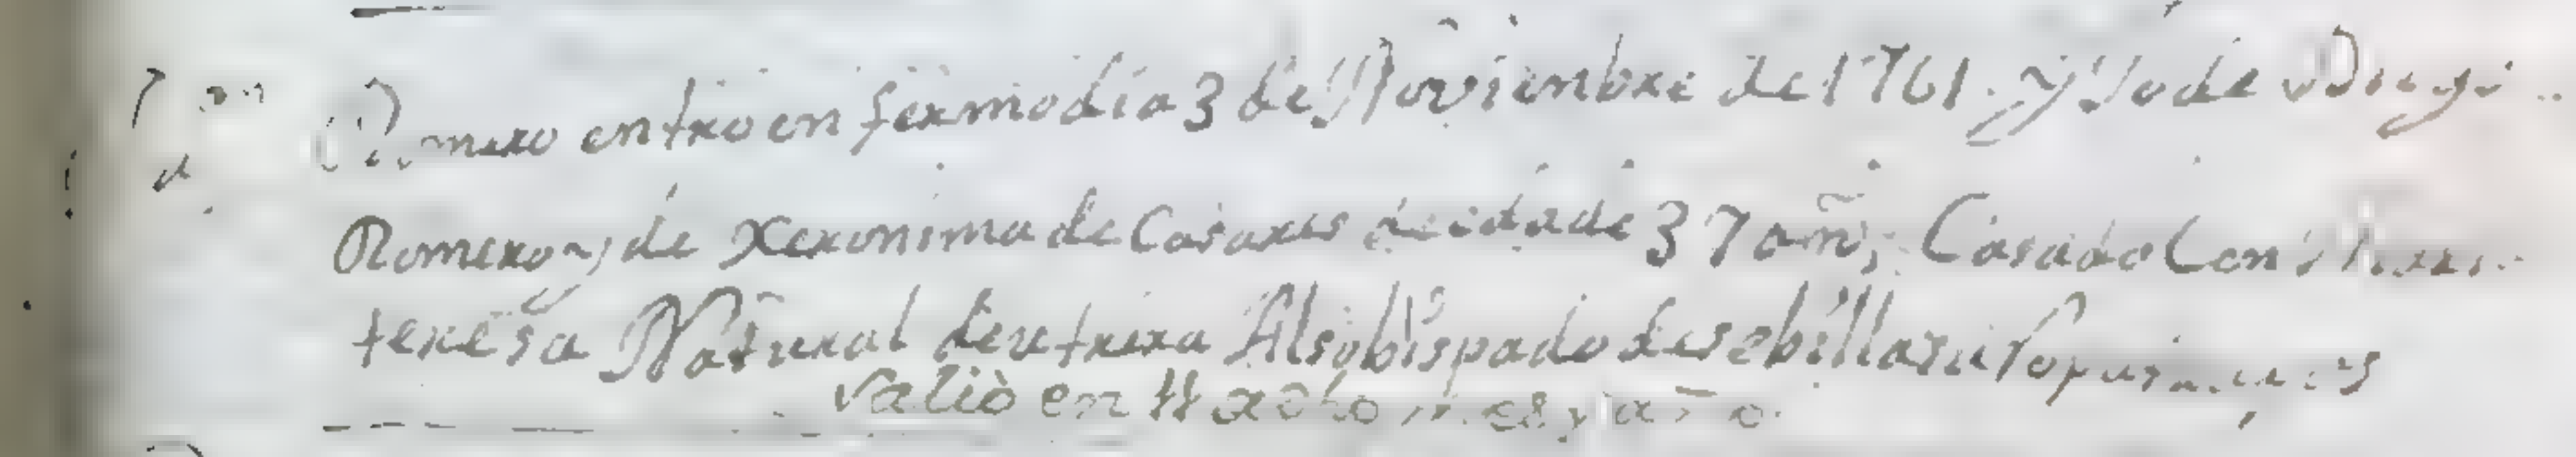 Romero entro en fermo dia 3 de Noviembre de 1761. yJo de Diego
Romero y de Xeronima de Casares de edad de 37 añs, Casado Con
teresa Natural de utrera Alsobispado de sebilla su Ropa
Saliò en 11 de dho mes y año.